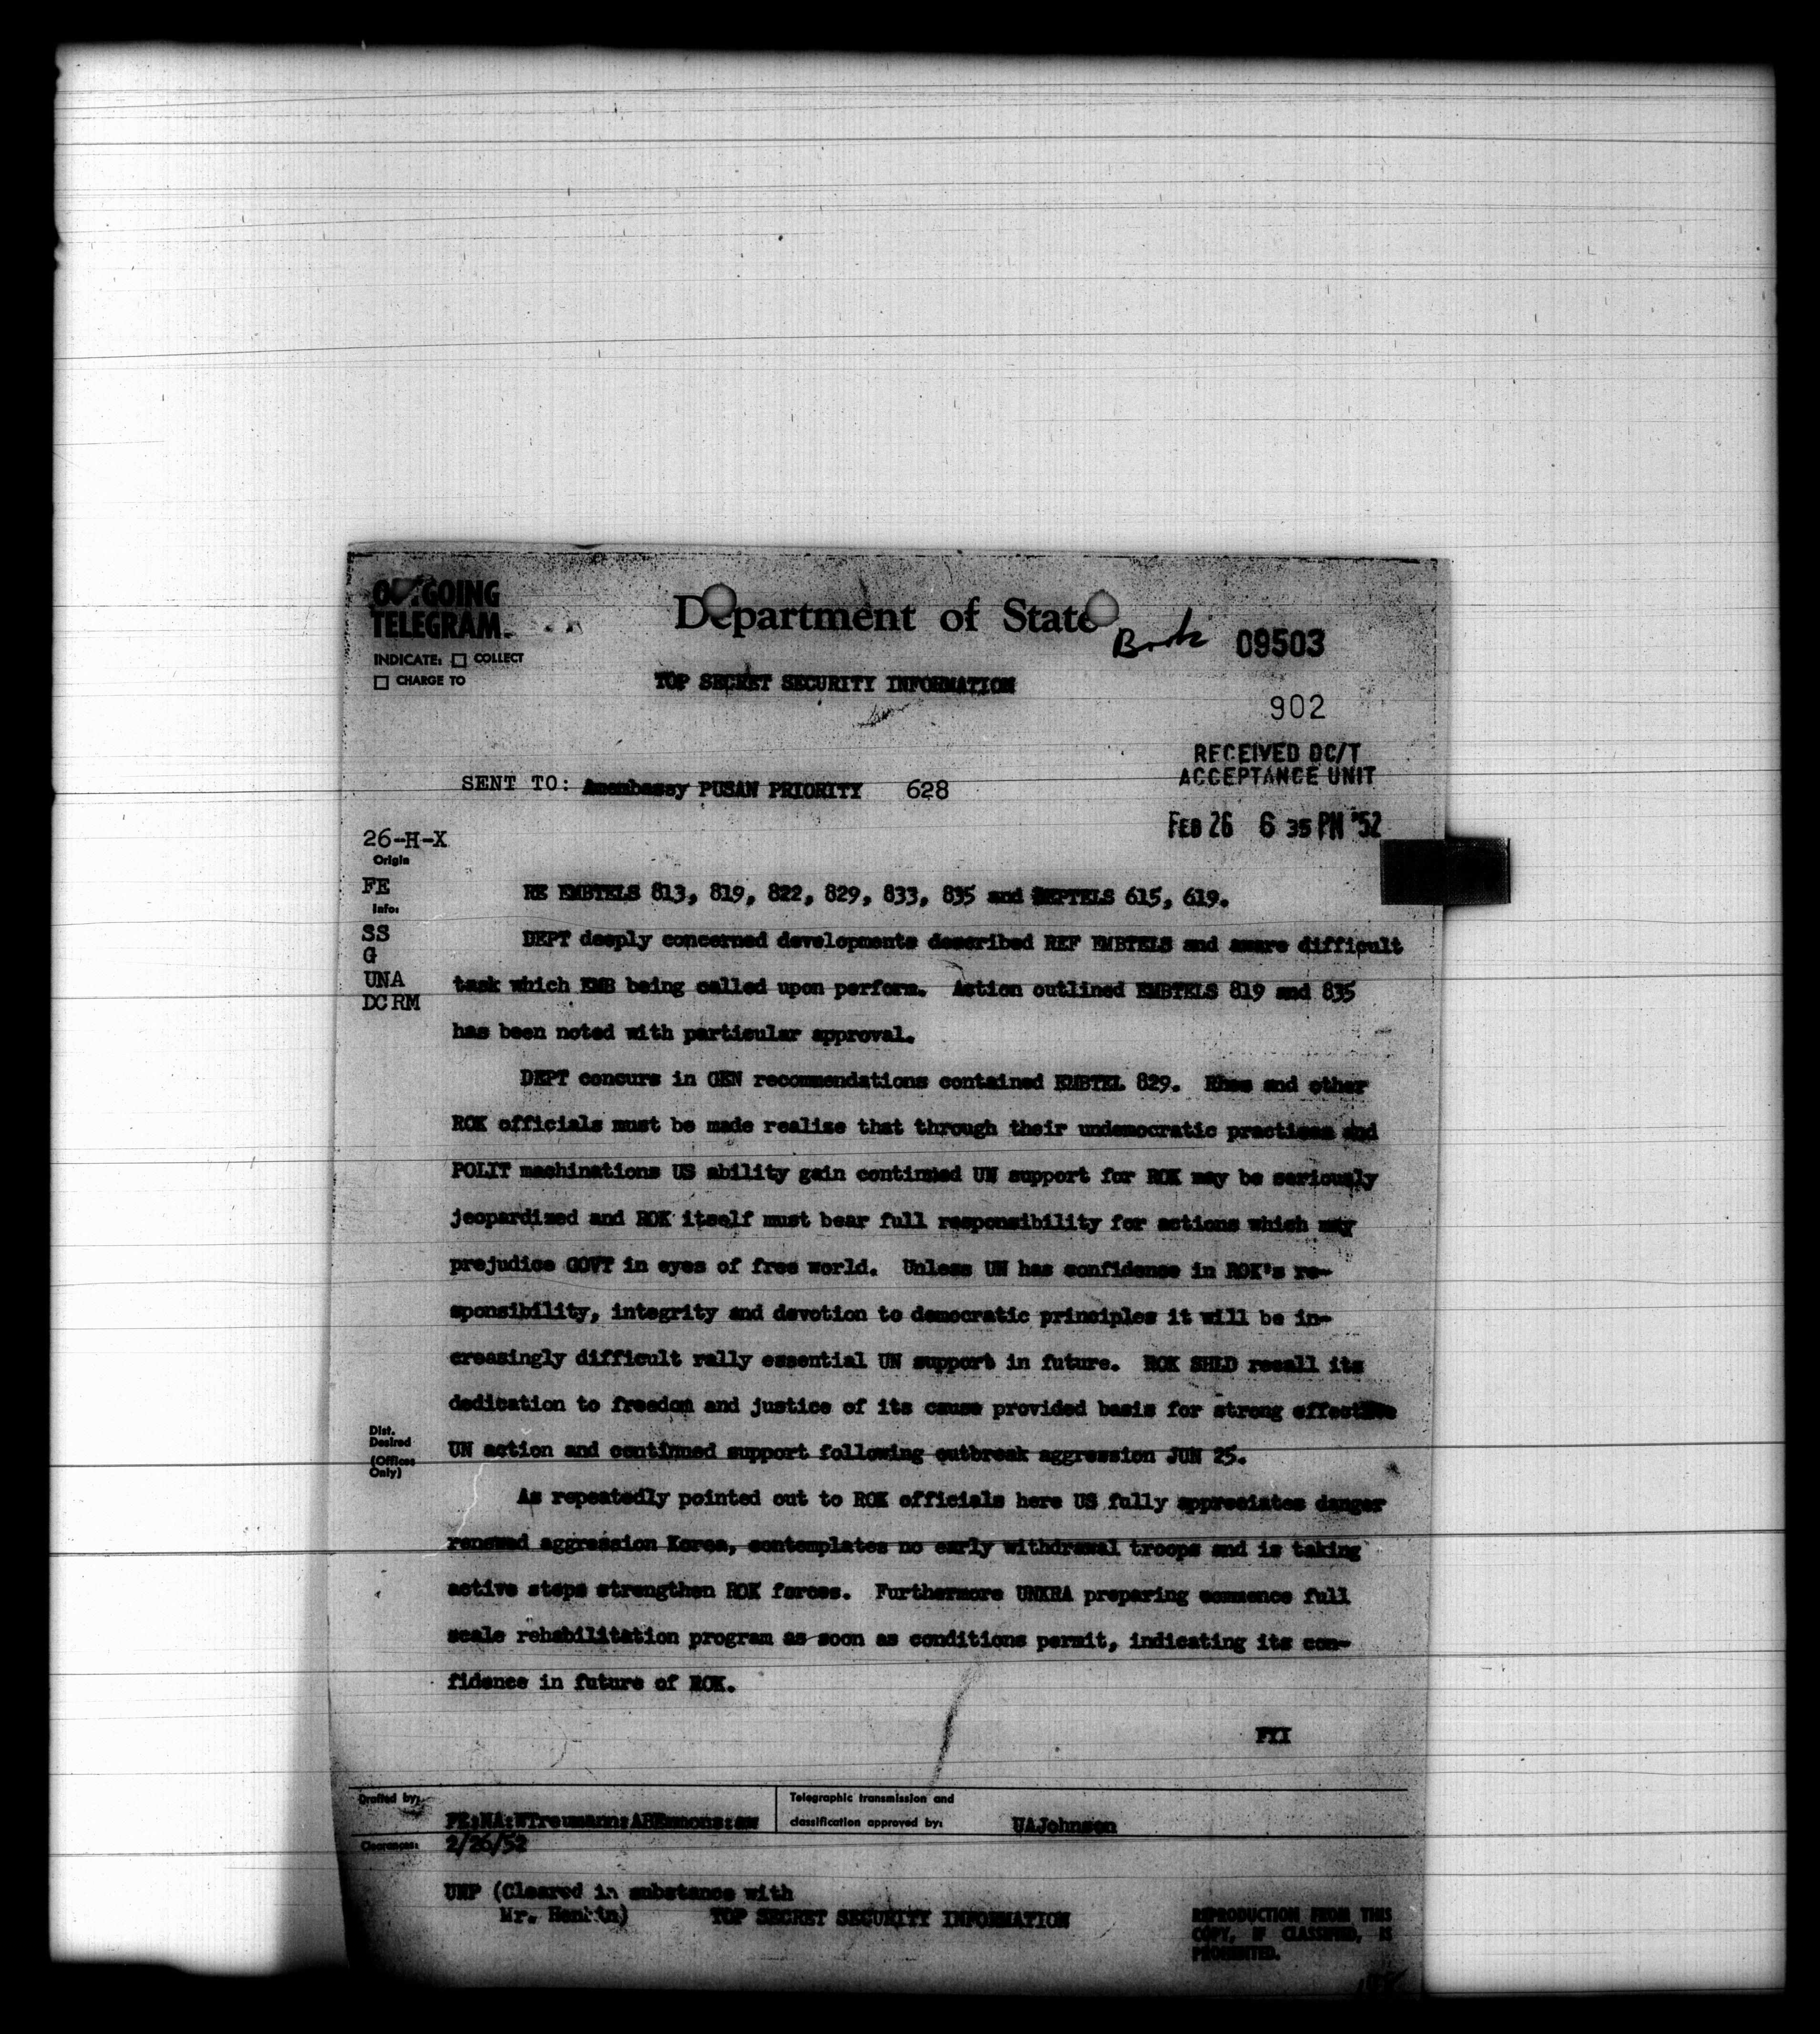 OUTGOING
TELEGRAM
INDICATE: □ COLLECT
□ CHARGE TO
Department of State
09503
TOP SECRET SECURITY INFORMATION
902
RECEIVED DC/T
ACCEPTANCE UNIT
SENT TO: Amembassy PUSAN PRIORITY 628
FEB 26 6 35 PM '52
26-H-X
Origin
FE
Info:
SS
G
UNA
DCRM
RE EMBTELS 813, 819, 822, 829, 833, 835 and DEPTELS 615, 619.
DEPT deeply concerned developments described REF EMBTELS and aware difficult
task which EMB being called upon perform. Action outlined EMBTELS 819 and 835
has been noted with particular approval.
DEPT concurs in GEN recommendations contained EMBTEL 829. Rhee and other
ROK officials must be made realize that through their undemocratic practices and
POLIT machinations US ability gain continued UN support for ROK may be seriously
jeopardized and ROK itself must bear full responsibility for actions which may
prejudice GOVT in eyes of free world. Unless UN has confidence in ROK's re-
sponsibility, integrity and devotion to democratic principles it will be in-
creasingly difficult rally essential UN support in future. ROK SHLD recall its
dedication to freedom and justice of its cause provided basis for strong effective
UN action and continued support following outbreak aggression JUN 25.
Dist.
Desired
(Offices
Only)
As repeatedly pointed out to ROK officials here US fully appreciates danger
renewed aggression Korea, contemplates no early withdrawal troops and is taking
active steps strengthen ROK forces. Furthermore UNKRA preparing commence full
scale rehabilitation program as soon as conditions permit, indicating its con-
fidence in future of ROK.
FYI
Drafted by:
FE:NA:WTreumann:ABEmmons:aw
Telegraphic transmission and
classification approved by:
UAJohnson
Clearances:
2/26/52
UNP (Cleared in substance with
Mr. Henkin)
TOP SECRET SECURITY INFORMATION
REPRODUCTION FROM THIS
COPY, IF CLASSIFIED, IS
PROHIBITED.